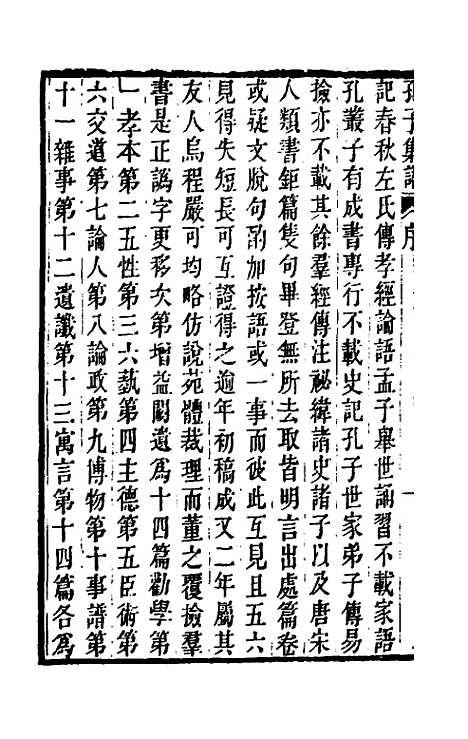 孔子集語 序
記春秋左氏傳孝經論語孟子舉世誦習不載家語
孔叢子有成書專行不載史記孔子世家弟子傳易
撿亦不載其餘羣經傳注祕緯諸史諸子以及唐宋
人類書鉅篇隻句畢登無所去取皆明言出處篇卷
或疑文脫句酌加按語或一事而彼此互見且五六
見得失短長可互證得之逾年初稿成又二年屬其
友人烏程嚴可均略仿說苑體裁理而董之覆撿羣
書是正譌字更移次第增益闕遺爲十四篇勸學第
一孝本第二五性第三六蓺第四主德第五臣術第
六交道第七論人第八論政第九博物第十事譜第
十一雜事第十二遺讖第十三寓言第十四篇各爲